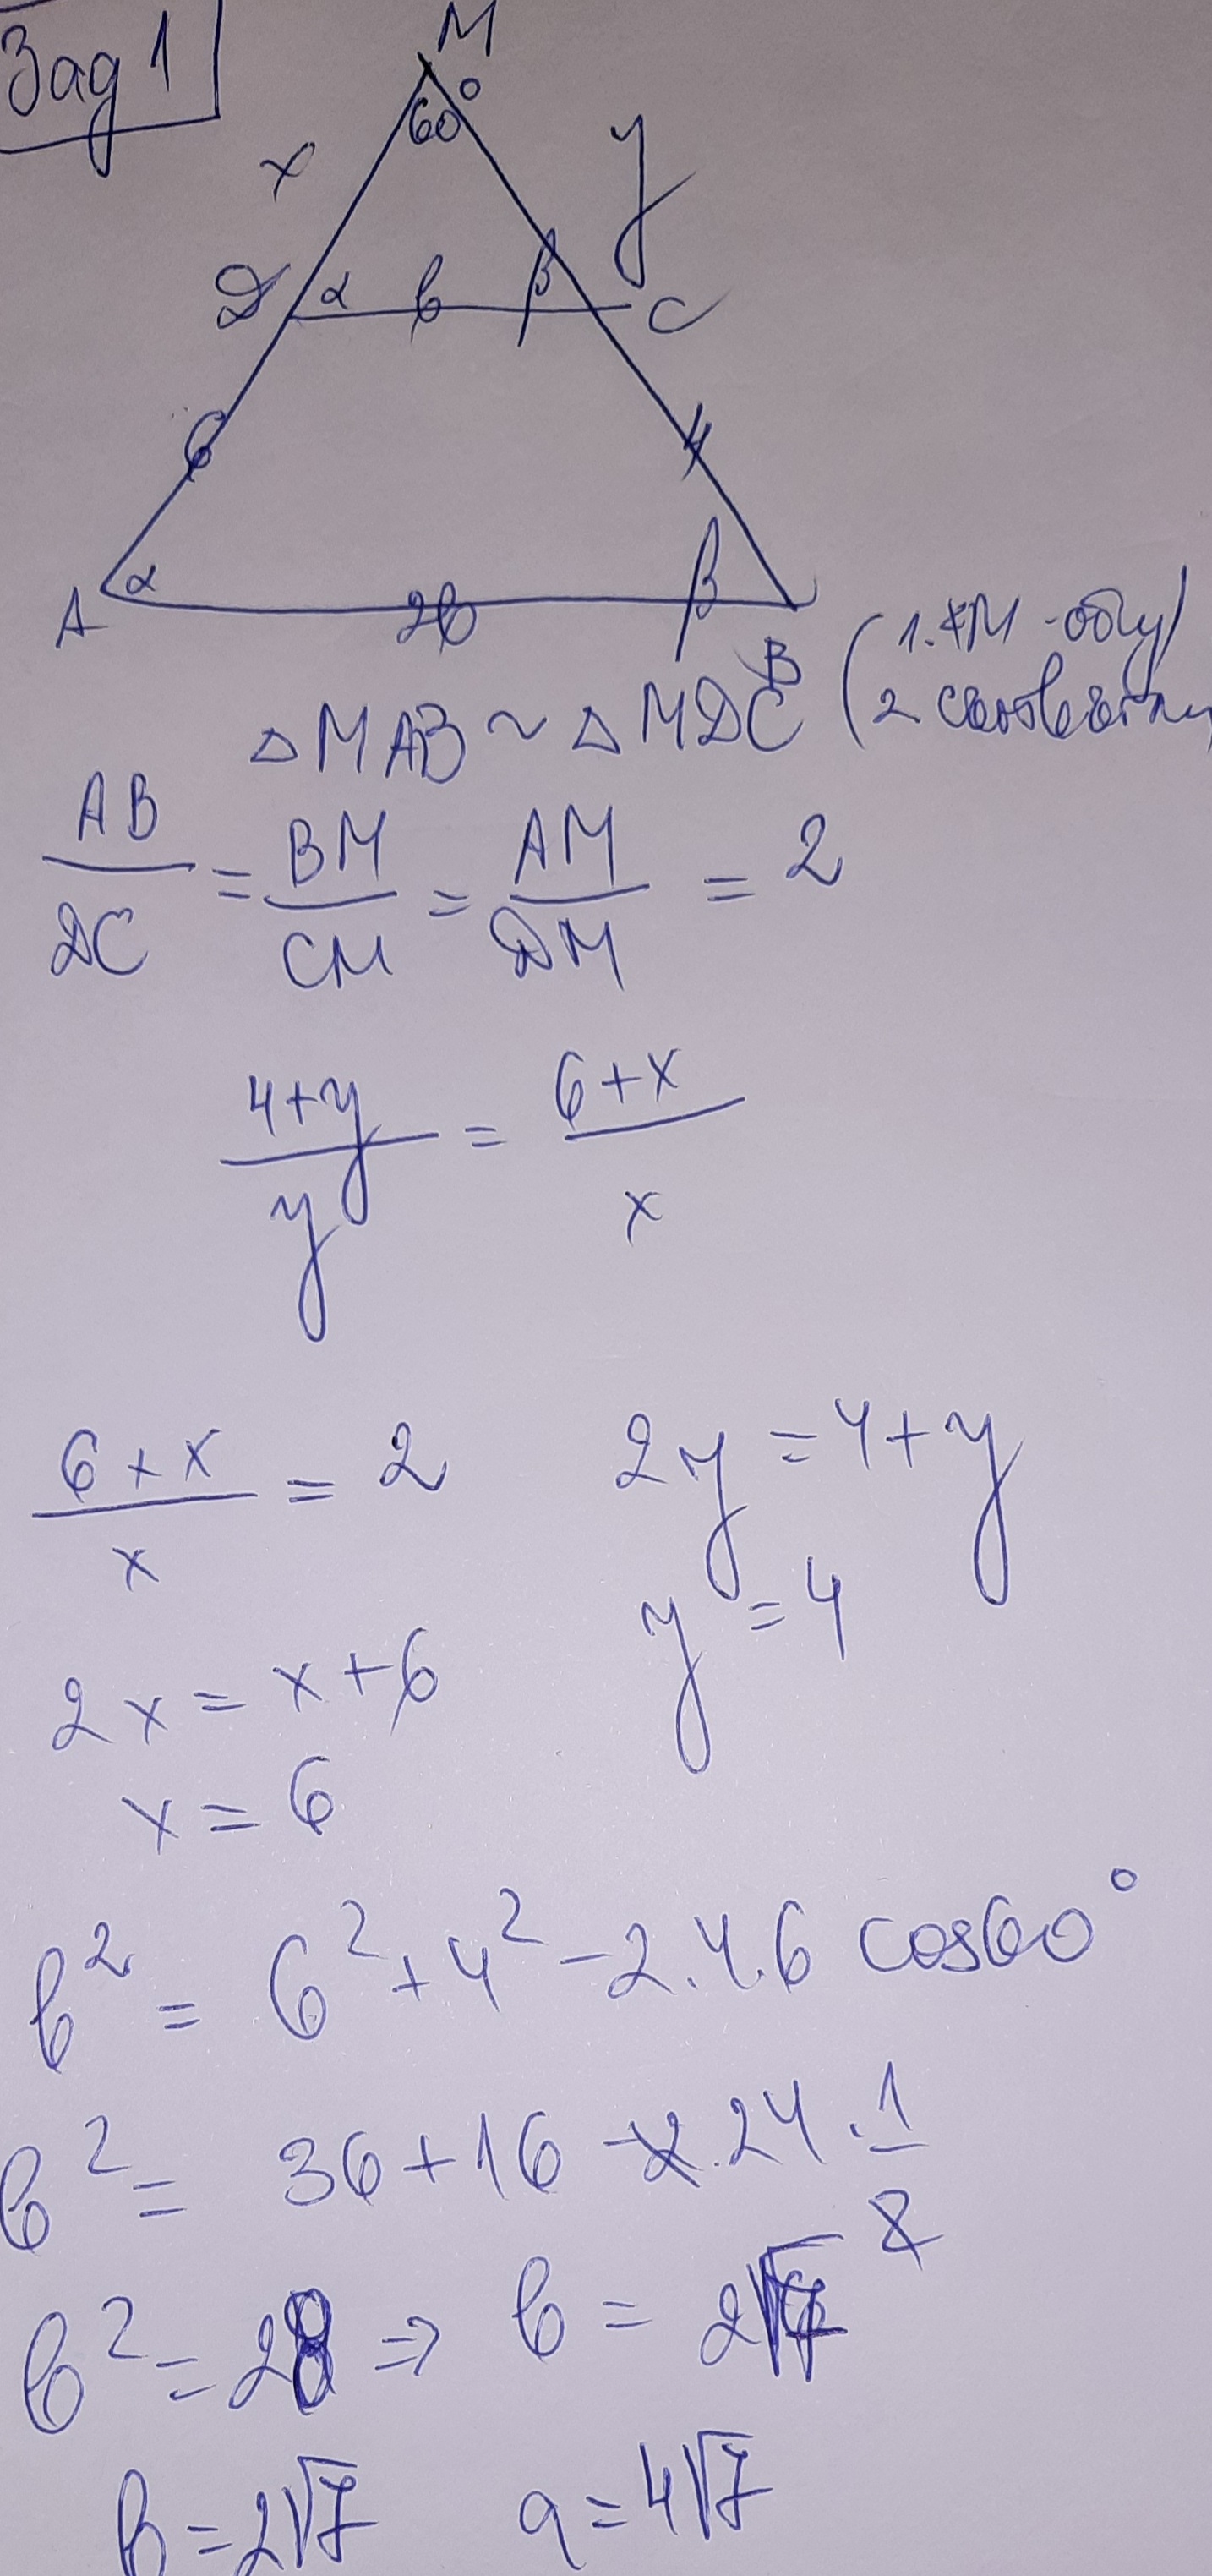 Зад 1
M
60°
x
y
D α b β C
6
4
A α 2b β B
△MAB ~ △MDC (1. ∢M - общ
2. съответни
AB/DC = BM/CM = AM/DM = 2
(4+y)/y = (6+x)/x
(6+x)/x = 2
2y = 4+y
y = 4
2x = x+6
x = 6
b² = 6² + 4² - 2.4.6 cos60°
b² = 36 + 16 - 2.24.1/2
b² = 28 => b = 2√7
b = 2√7 a = 4√7